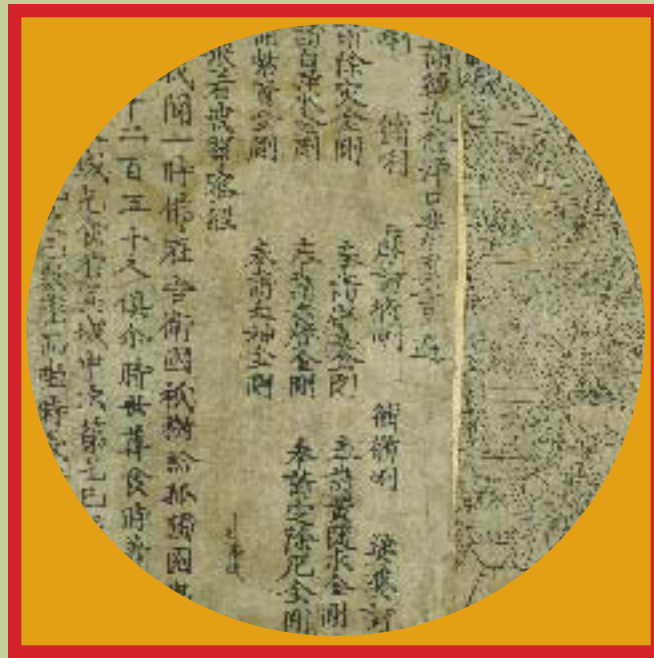 誦經先念淨口業真言 遍
唎 脩唎 摩訶脩唎 脩脩唎 娑婆訶
請除灾金剛 奉請辟毒金剛 奉請黃隨求金剛
請白淨水金剛 奉請赤聲金剛 奉請定除厄金剛
請紫賢金剛 奉請大神金剛
般若波羅蜜經
我聞一時佛在舍衛國祇樹給孤獨園
千二百五十人俱尒時世尊食時著
城乞食於其城中次第乞已
座而坐時